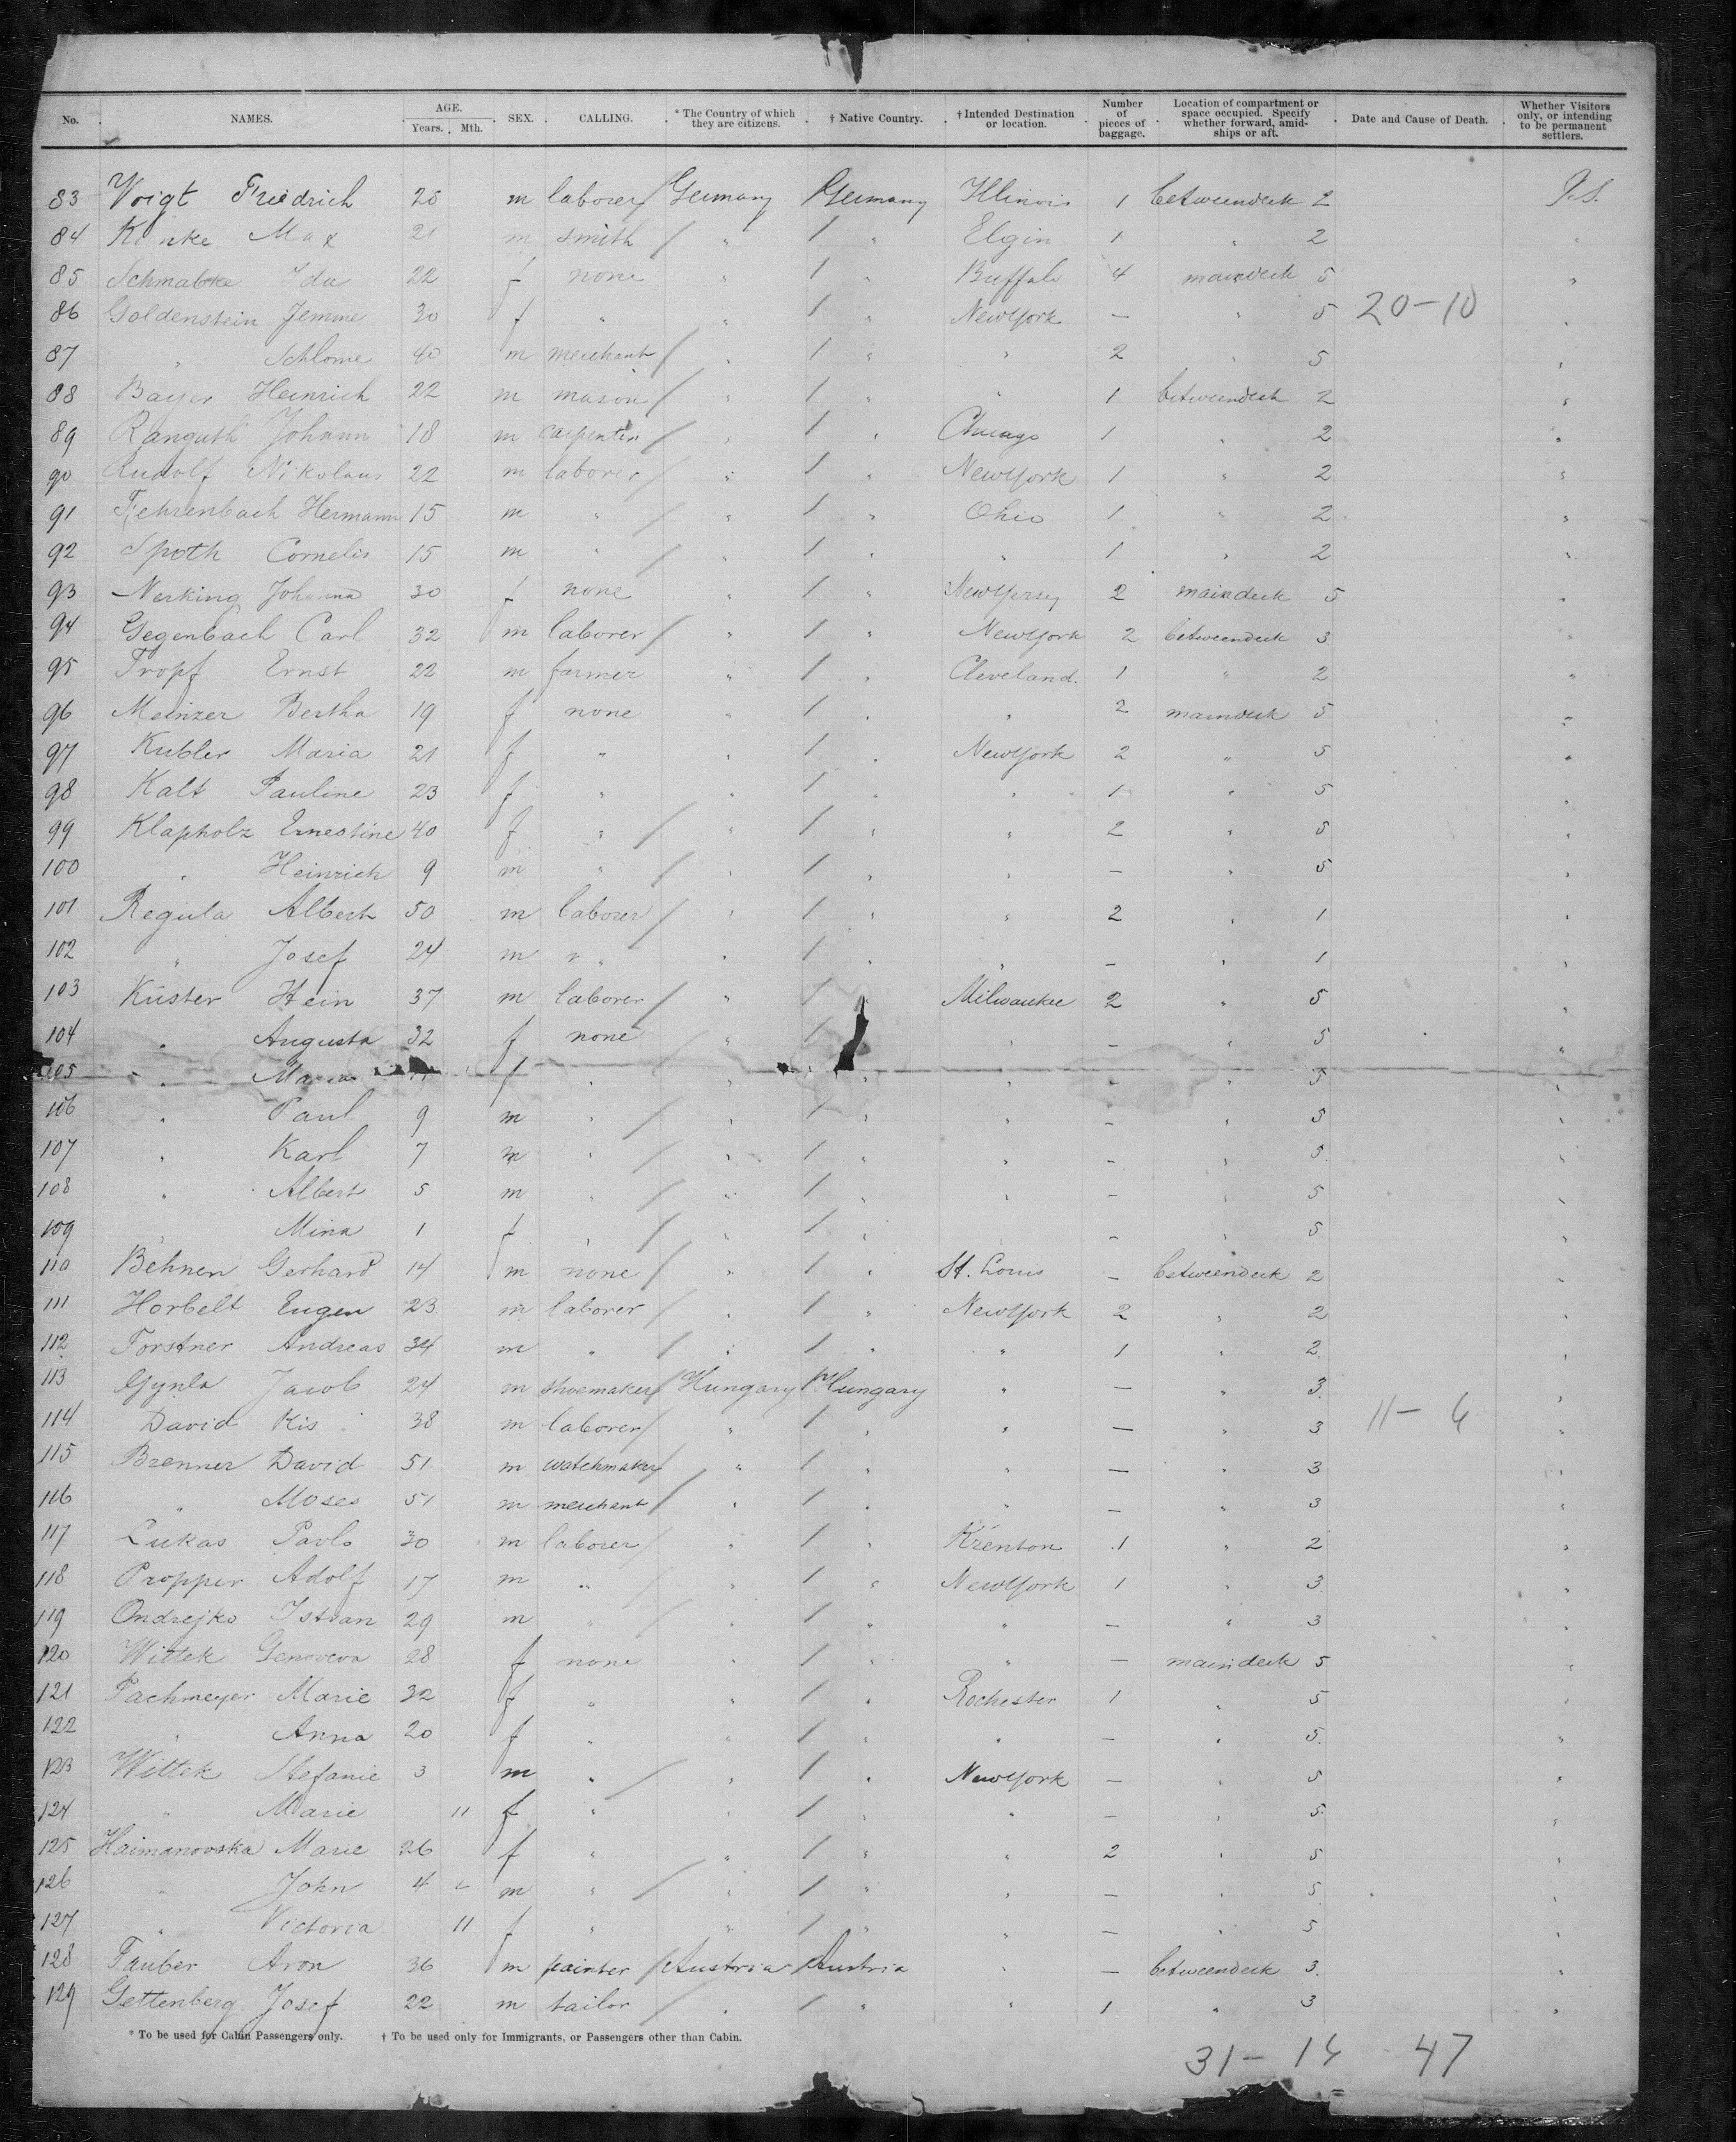 No. NAMES. AGE. Years. Mth. SEX. CALLING. * The Country of which they are citizens. † Native Country. † Intended Destination or location. Number of pieces of baggage. Location of compartment or space occupied. Specify whether forward, amidships or aft. Date and Cause of Death. Whether Visitors only, or intending to be permanent settlers.
83 Voigt Friedrich 25 m laborer Germany Germany Illinois 1 betweendeck 2
84 Max 21 m smith / " / " Elgin 1 " 2 "
85 Schmabke Ida 22 f none " / " Buffalo 4 maindeck 5 "
86 Goldenstein Jemme 30 f " " / " NewYork — " 5 20-10 "
87 " Schlome 40 m merchant / " / " " 2 " 5 "
88 Bayer Heinrich 22 m mason / " / " " 1 betweendeck 2 "
89 Ranguth Johann 18 m carpenter / " / " Chicago 1 " 2 "
90 Rudolf Nikolaus 22 m laborer / " / " NewYork 1 " 2 "
91 Fehrenbach Hermann 15 m " / " / " Ohio 1 " 2 "
92 Spoth Cornelis 15 m " / " / " " 1 " 2 "
93 Nerking Johanna 30 f none " / " NewYersey 2 maindeck 5 "
94 Gegenbach Carl 32 m laborer / " / " NewYork 2 betweendeck 3 "
95 Tropf Ernst 22 m farmer " / " Cleveland. 1 " 2 "
96 Meinzer Bertha 19 f none " / " " 2 maindeck 5 "
97 Kubler Maria 21 f " " / " NewYork 2 " 5 "
98 Kalt Pauline 23 f " " / " " 1 " 5 "
99 Klapholz Ernestine 40 f " / " / " " 2 " 5 "
100 " Heinrich 9 m " / " / " " — " 5 "
101 Regula Albert 50 m laborer / " / " " 2 " 1 "
102 " Josef 24 m " " / " " — " 1 "
103 Küster Hein 37 m laborer / " / " Milwaukee 2 " 5 "
104 " Augusta 32 f none " / " " — " 5 "
105 " f " " " " - " 5 "
106 " Paul 9 m " / " / " " - " 5 "
107 " Karl 7 m " / " / " " - " 5 "
108 " Albert 5 m " / " / " " - " 5 "
109 " Mina 1 f " / " / " " - " 5 "
110 Behnen Gerhard 14 m none / " / " St. Louis - betweendeck 2 "
111 Horbelt Eugen 23 m laborer / " / " NewYork 2 " 2 "
112 Forstner Andreas 34 m " / " / " " 1 " 2 "
113 Jacob 24 m shoemaker / Hungary / Hungary " — " 3 "
114 David Kis 38 m laborer / " / " " — " 3 11- 6 "
115 Brenner David 51 m watchmaker / " / " " — " 3 "
116 " Moses 51 m merchant / " / " " — " 3 "
117 Lukas Pavlo 30 m laborer / " / " Krenton 1 " 2 "
118 Propper Adolf 17 m " / " / " NewYork 1 " 3 "
119 Ondrejko Istvan 29 m " / " / " " — " 3 "
120 Wittek Genoveva 28 f none " / " " — maindeck 5 "
121 Pachmeyer Marie 32 f " " / " Rochester 1 " 5 "
122 " Anna 20 f " " / " " — " 5 "
123 Wittek Stefanie 3 m " / " / " NewYork — " 5 "
124 " Marie 11 f " " / " " — " 5 "
125 Haimanovska Marie 26 f " " / " " 2 " 5 "
126 " John 4 m " / " / " " — " 5 "
127 " Victoria 11 f " " / " " — " 5 "
128 Tauber Aron 36 m painter / Austria / Austria " — betweendeck 3 "
129 Gettenberg Josef 22 m tailor / " / " " 1 " 3 "
* To be used for Cabin Passengers only. † To be used only for Immigrants, or Passengers other than Cabin.
31- 47